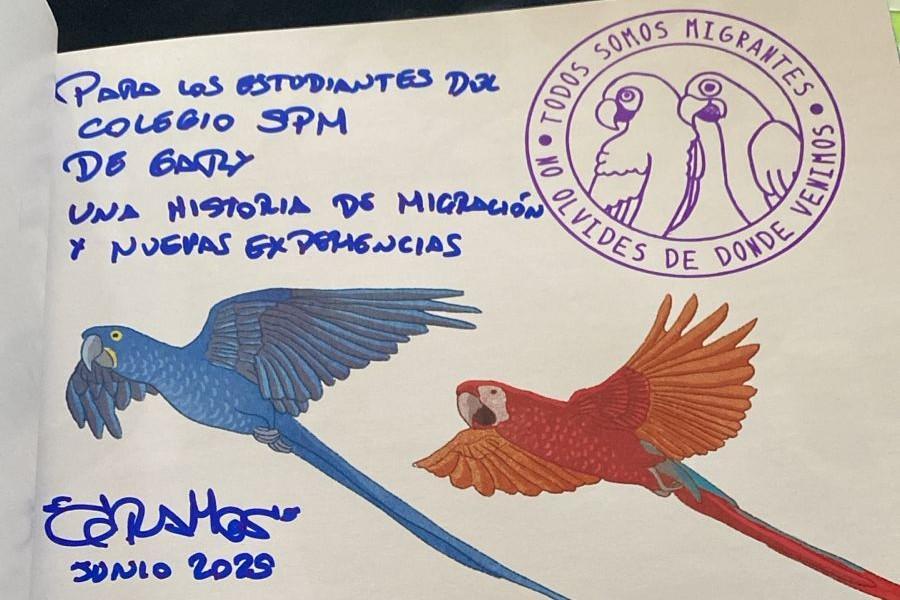 PARA LOS ESTUDIANTES DEL
COLEGIO SPM
DE GARY
UNA HISTORIA DE MIGRACIÓN
Y NUEVAS EXPERIENCIAS
TODOS SOMOS MIGRANTES
NO OLVIDES DE DONDE VENIMOS
JUNIO 2025